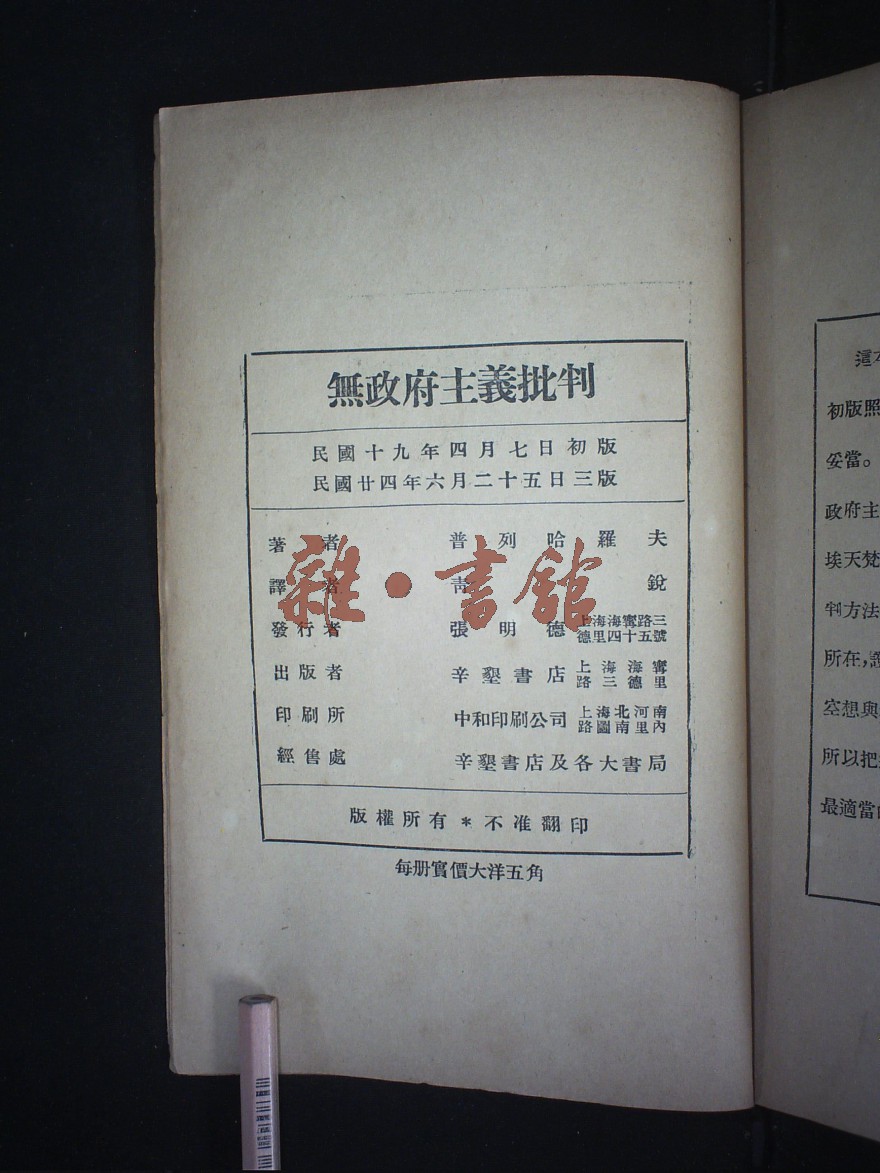 無政府主義批判
民國十九年四月七日初版
民國廿四年六月二十五日三版
著者 普列哈羅夫
譯者 青銳
發行者 張明德 上海海寧路三
德里四十五號
出版者 辛墾書店 上海海寧
路三德里
印刷所 中和印刷公司 上海北河南
路圖南里內
經售處 辛墾書店及各大書局
版權所有*不准翻印
每册實價大洋五角
雜·書館
這
初版照
妥當。
政府主
埃天梵
判方法
所在,證
空想與
所以把
最適當